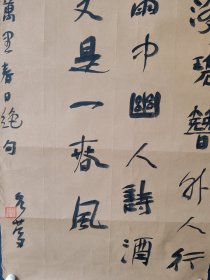 碧簪外人行
雨中幽人詩酒
又是一春風
萬里春日絕句